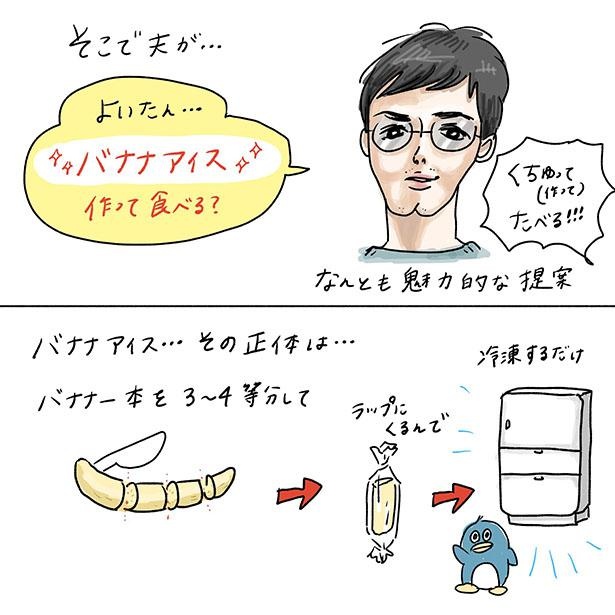 そこで夫が…
よいたん…
バナナアイス
作って食べる?
くちゅって
(作って)
たべる!!!
なんとも魅力的な提案
バナナアイス…その正体は…
バナナ一本を3〜4等分して
ラップに
くるんで
冷凍するだけ